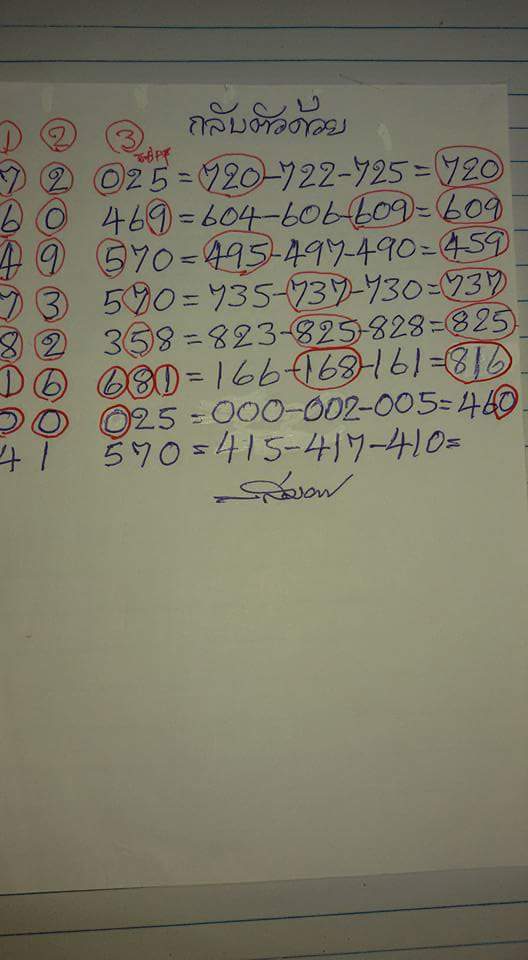 กลับตัวด้วย
1 2 3
72 025 = 720-722-725 = 720
60 469 = 604-606-609 = 609
49 570 = 495-497-490 = 459
73 570 = 735-737-730 = 737
82 358 = 823-825-828 = 825
16 681 = 166-168-161 = 816
00 025 = 000-002-005 = 460
41 570 = 415-417-410 =